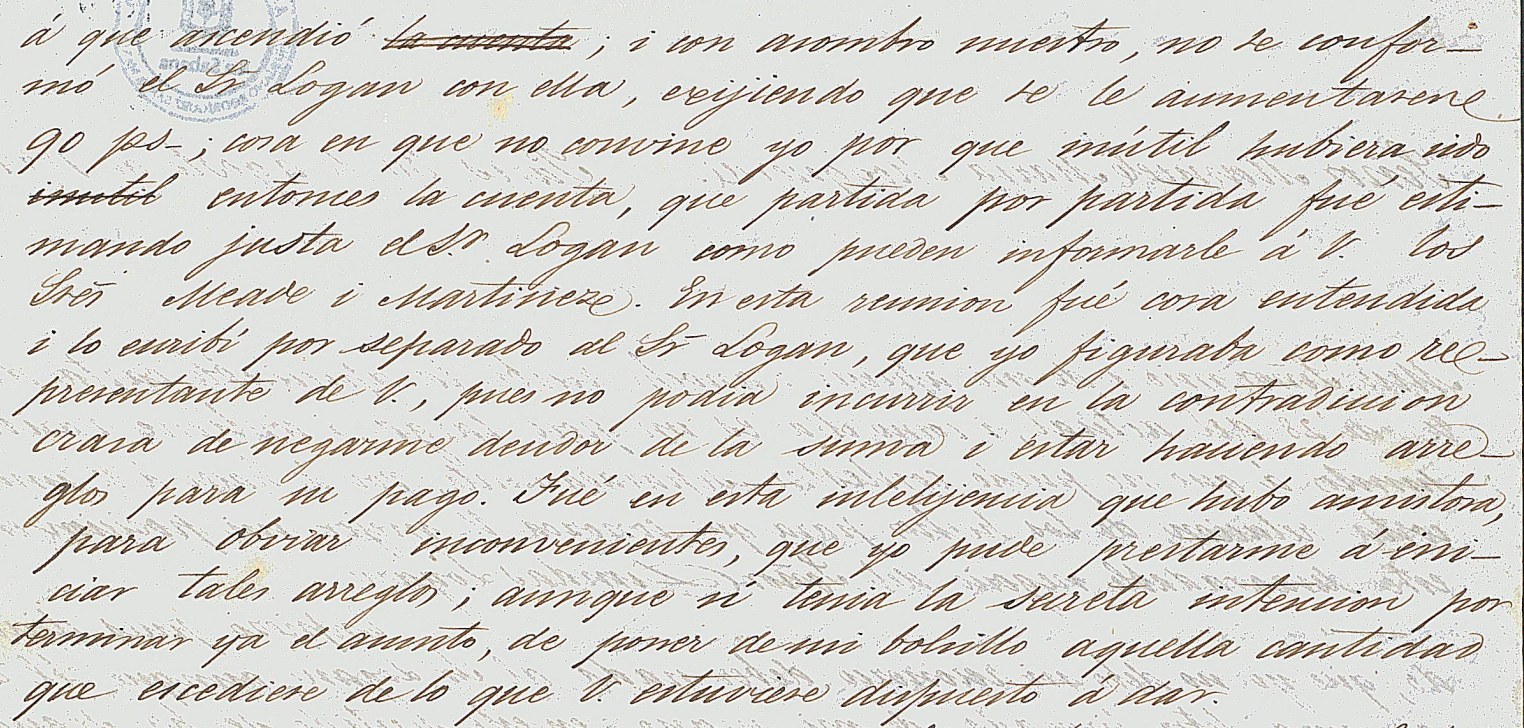 á que ascendió la cuenta; i con asombro nuestro, no se confor-
mó el Sr Logan con ella, exijiendo que se le aumentasene
90 ps-; cosa en que no convine yo por que inútil hubiera sido
inutil entonces la cuenta, que partida por partida fué esti-
mando justa el Sr. Logan como pueden informarle á V. los
Srēs Meade i Martineze. En esta reunion fué cosa entendida
i lo escribí por separado al Sr Logan, que yo figuraba como ree-
presentante de V., pues no podia incurrir en la contradiccion
crasa de negarme deudor de la suma i estar haciendo arre-
glos para su pago. Fué en esta intelijencia que hubo amistosa,
para obviar inconvenientes, que yo pude prestarme á ini-
ciar tales arreglos; aunque sí tenia la secreta intencion por
terminar ya el asunto, de poner de mi bolsillo aquella cantidad
que escediese de lo que V. estuviese dispuesto á dar.
de Sabana